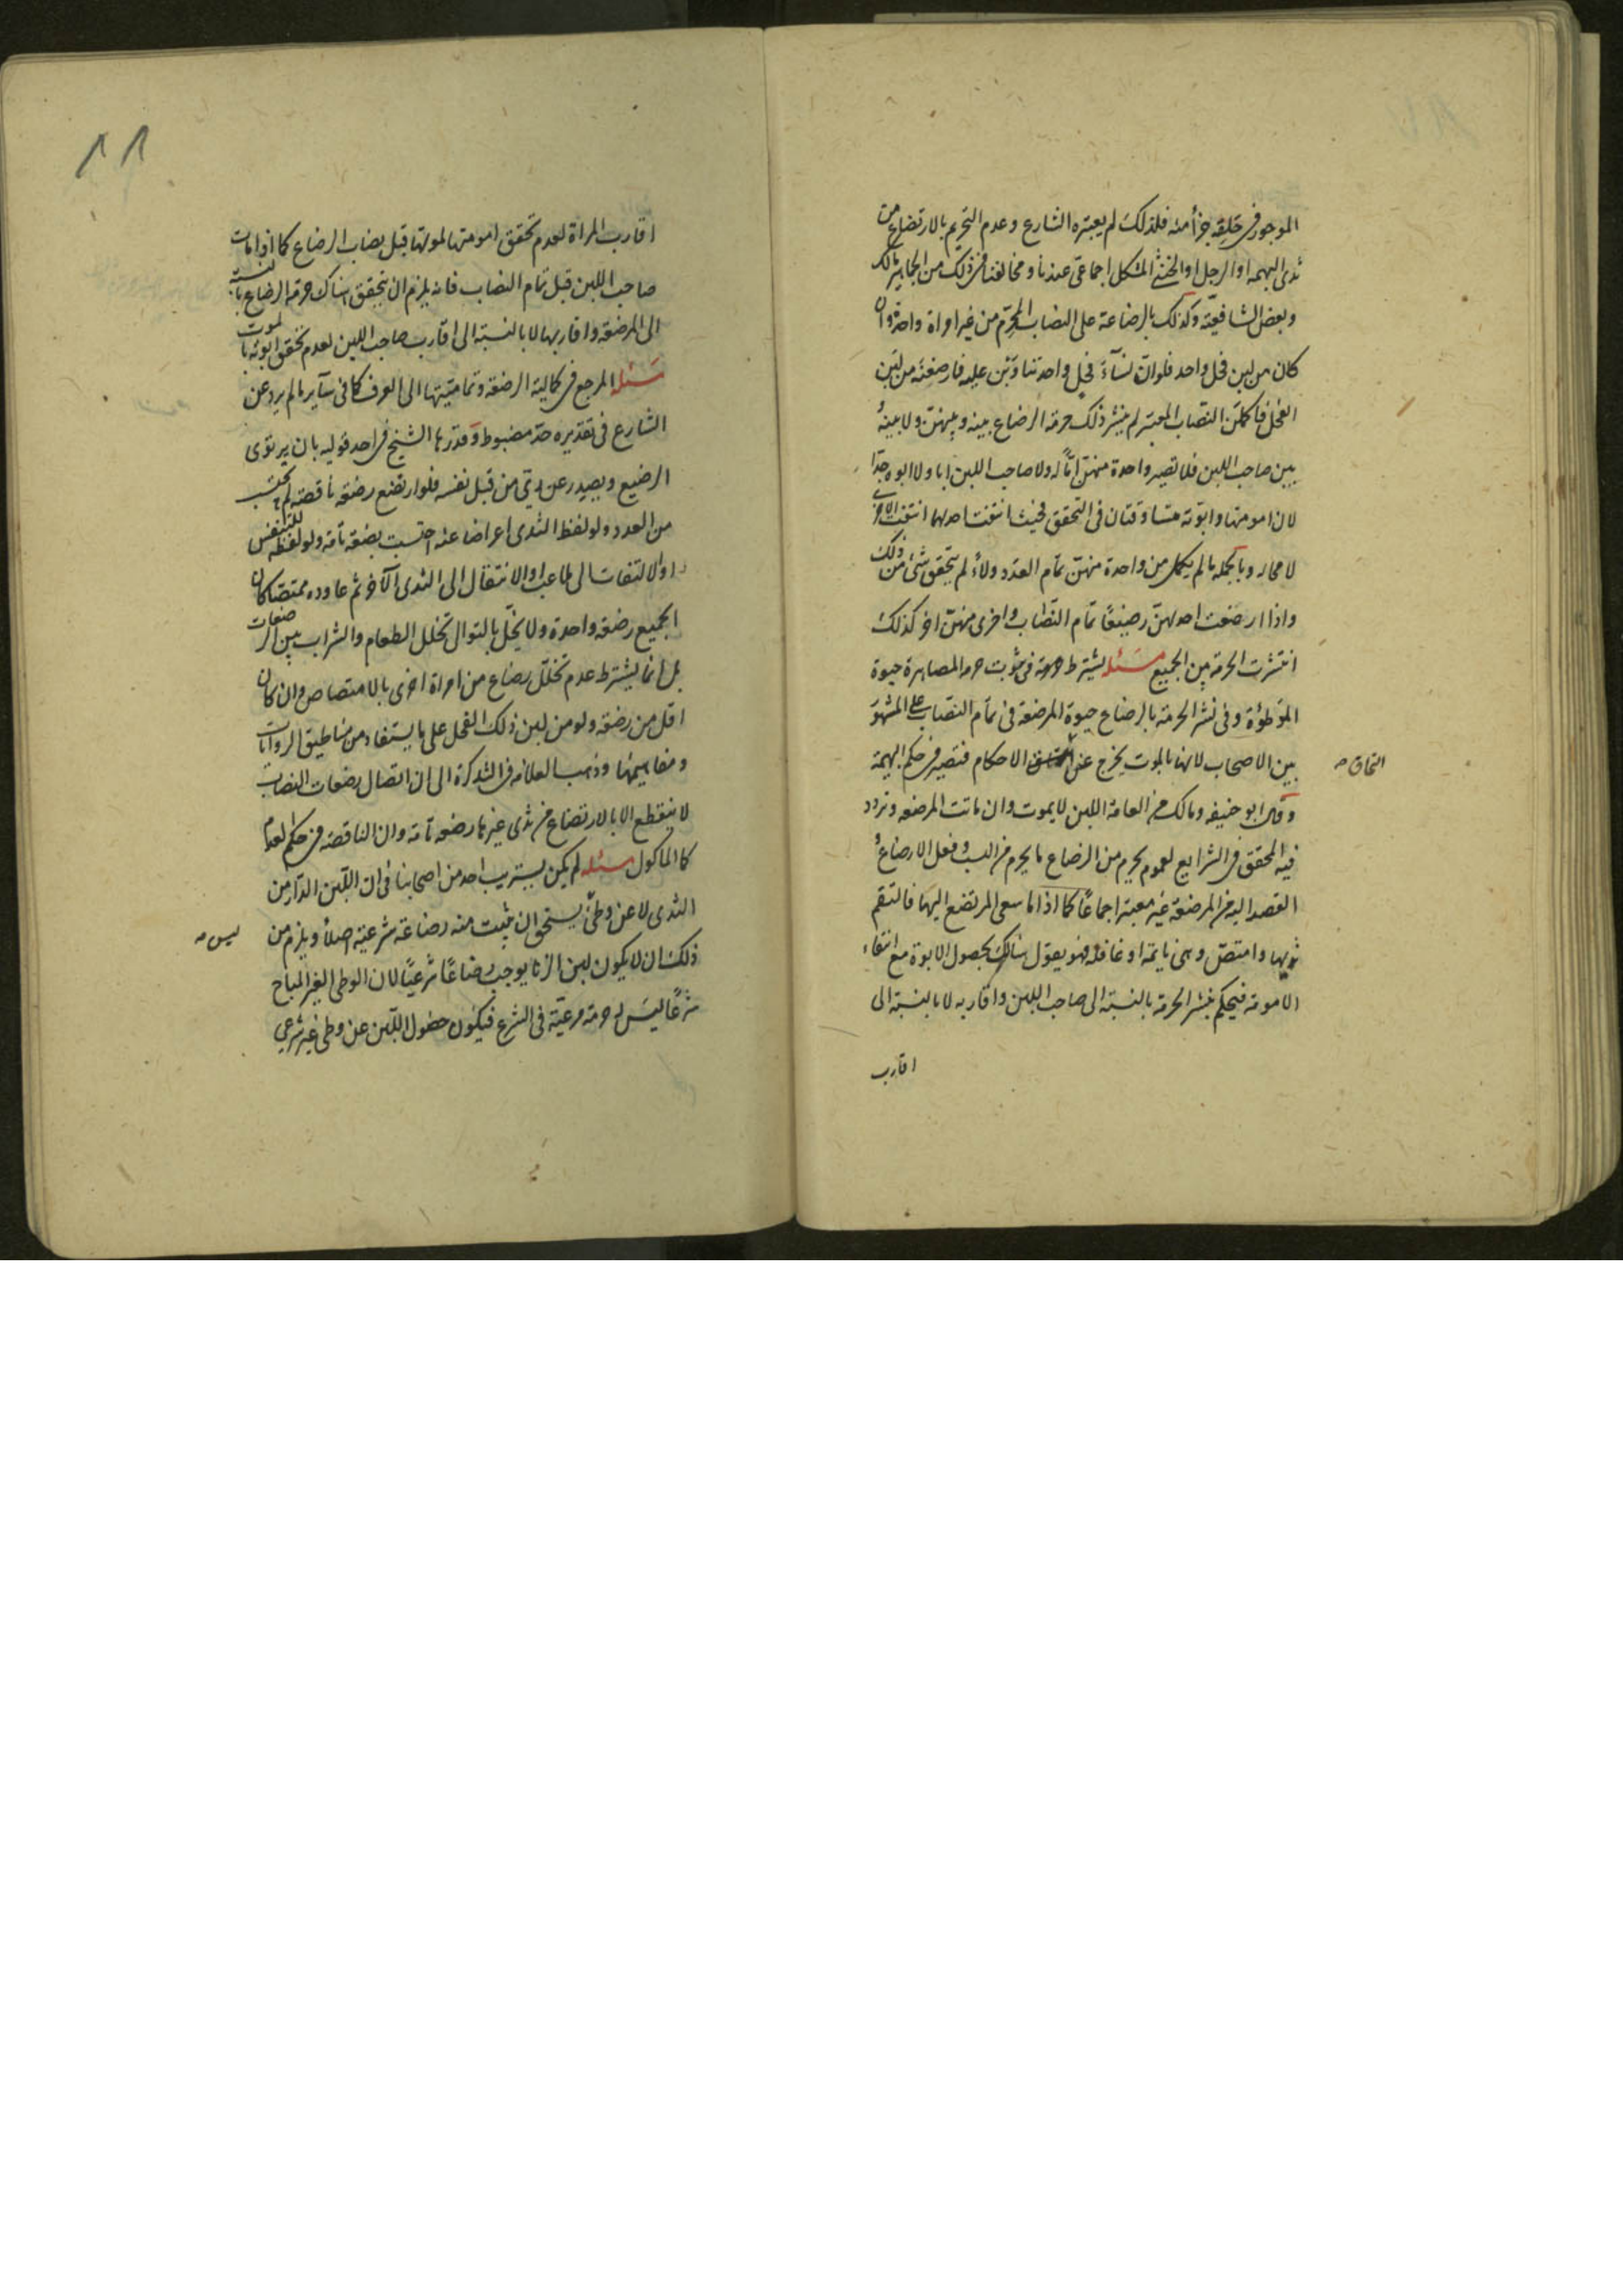 الموجود في خلقه جزأ منه فلذلك لم يعتبره الشارع وعدم التحريم بالارتضاع من
ثدى البهيمه او الرجل او الخنثى المشكل اجماعى عندنا ومخالفنا في ذلك من الجماهير مالك
وبعض الشافعية وكذلك بالرضاعة على النصاب المحرم من غير امراة واحدة وان
كان من لبن فحل واحد فلو ان نسآء فحل واحد تناوبن عليه فارضعنه من لبن
الفحل فاكملن النصاب المعتبر لم ينشر ذلك حرمة الرضاع بينه وبينهن ولا بينه
بين صاحب اللبن فلا تصير واحدة منهن امّاً له ولا صاحب اللبن ابا ولا ابوه جدا
لان امومتها وابوته متساوقتان فى التحقق فحيث انتفت احديهما انتفت الاخرى
لا محاله وبالجمله ما لم يكمل من واحدة منهن تمام العدد ولاءً لم يتحقق شئ من ذلك
واذا ارضعت احديهن رضيعًا تمام النصاب واخرى منهن اخر كذلك
انتشرت الحرمة بين الجميع مسئله يشترط في ثبوت حرمة المصاهرة حيوة
الموطؤة وفى نشر الحرمة بالرضاع حيوة المرضعة فى تمام النصاب على المشهور
بين الاصحاب لانها بالموت يخرج عن الاحكام فتصير في حكم البهيمة
التحاق
وقال ابو حنيفه ومالك من العامة اللبن لا يموت وان ماتت المرضعه وتردد
فيه المحقق في الشرايع لعموم يحرم من الرضاع ما يحرم من النسب وفعل الارضاع
القصد اليه من المرضعة غير معتبر اجماعًا كما اذا ما سعى المرتضع اليها فالتقم
ثديها وامتص وهى نايمة او غافلة فهو يعول هناك بحصول الابوة مع انتفاء
الامومة فيحكم بنشر الحرمة بالنسبة الى صاحب اللبن واقاربه لا بالنسبة الى
اقارب
اقارب المراة لعدم تحقق امومتها لموتها قبل نصاب الرضاع كما اذا مات
صاحب اللبن قبل تمام النصاب فانه يلزم ان يتحقق هناك حرمة الرضاع بالنسبة
الى المرضعة واقاربها لا بالنسبة الى اقارب صاحب اللبن لعدم تحقق ابوته بالموت
مسئله المرجع في كمالية الرضعة وتماميتها الى العرف كما فى سآير ما لم يرد عن
الشارع فى تقديره حد مضبوط وقدرها الشيخ في احد قوليه بان يرتوى
الرضيع ويصدر عن ري من قبل نفسه فلو ارتضع رضعه ناقصة لم يحتسب
من العدد ولو لفظ الثدى اعراضا عنه احتسب رضعه تامة ولو لفظه للتنفس
او الالتفات الى ملاعب او الانتقال الى الثدى الآخر ثم عاوده ممتصا كان
الجميع رضعة واحدة ولا يخل بالتوالى تخلل الطعام والشراب بين الرضعات
بل انما يشترط عدم تخلل رضاع من امراة اخرى بالامتصاص وان كان
اقل من رضعة ولو من لبن ذلك الفحل على ما يستفاد من مناطيق الروايات
ومفاهيمها وذهب العلامة في التذكرة الى ان اتصال رضعات النصاب
لا ينقطع الا بالارتضاع من ثدى غيرها رضعه تامة وان الناقصة في حكم العدم
كالماكول مسئله لم يكن يستريب احد من اصحابنا فى ان اللبن الدار من
الثدى لا عن وطئ يستحق ان يثبت منه رضاعة شرعية اصلاً ويلزم من
ليس
ذلك ان لا يكون لبن الزنا يوجب رضاعًا شرعيًا لان الوطى الغير المباح
شرعًا ليس له حرمة مرعية فى الشرع فيكون حصول اللبن عن وطى غير شرعي